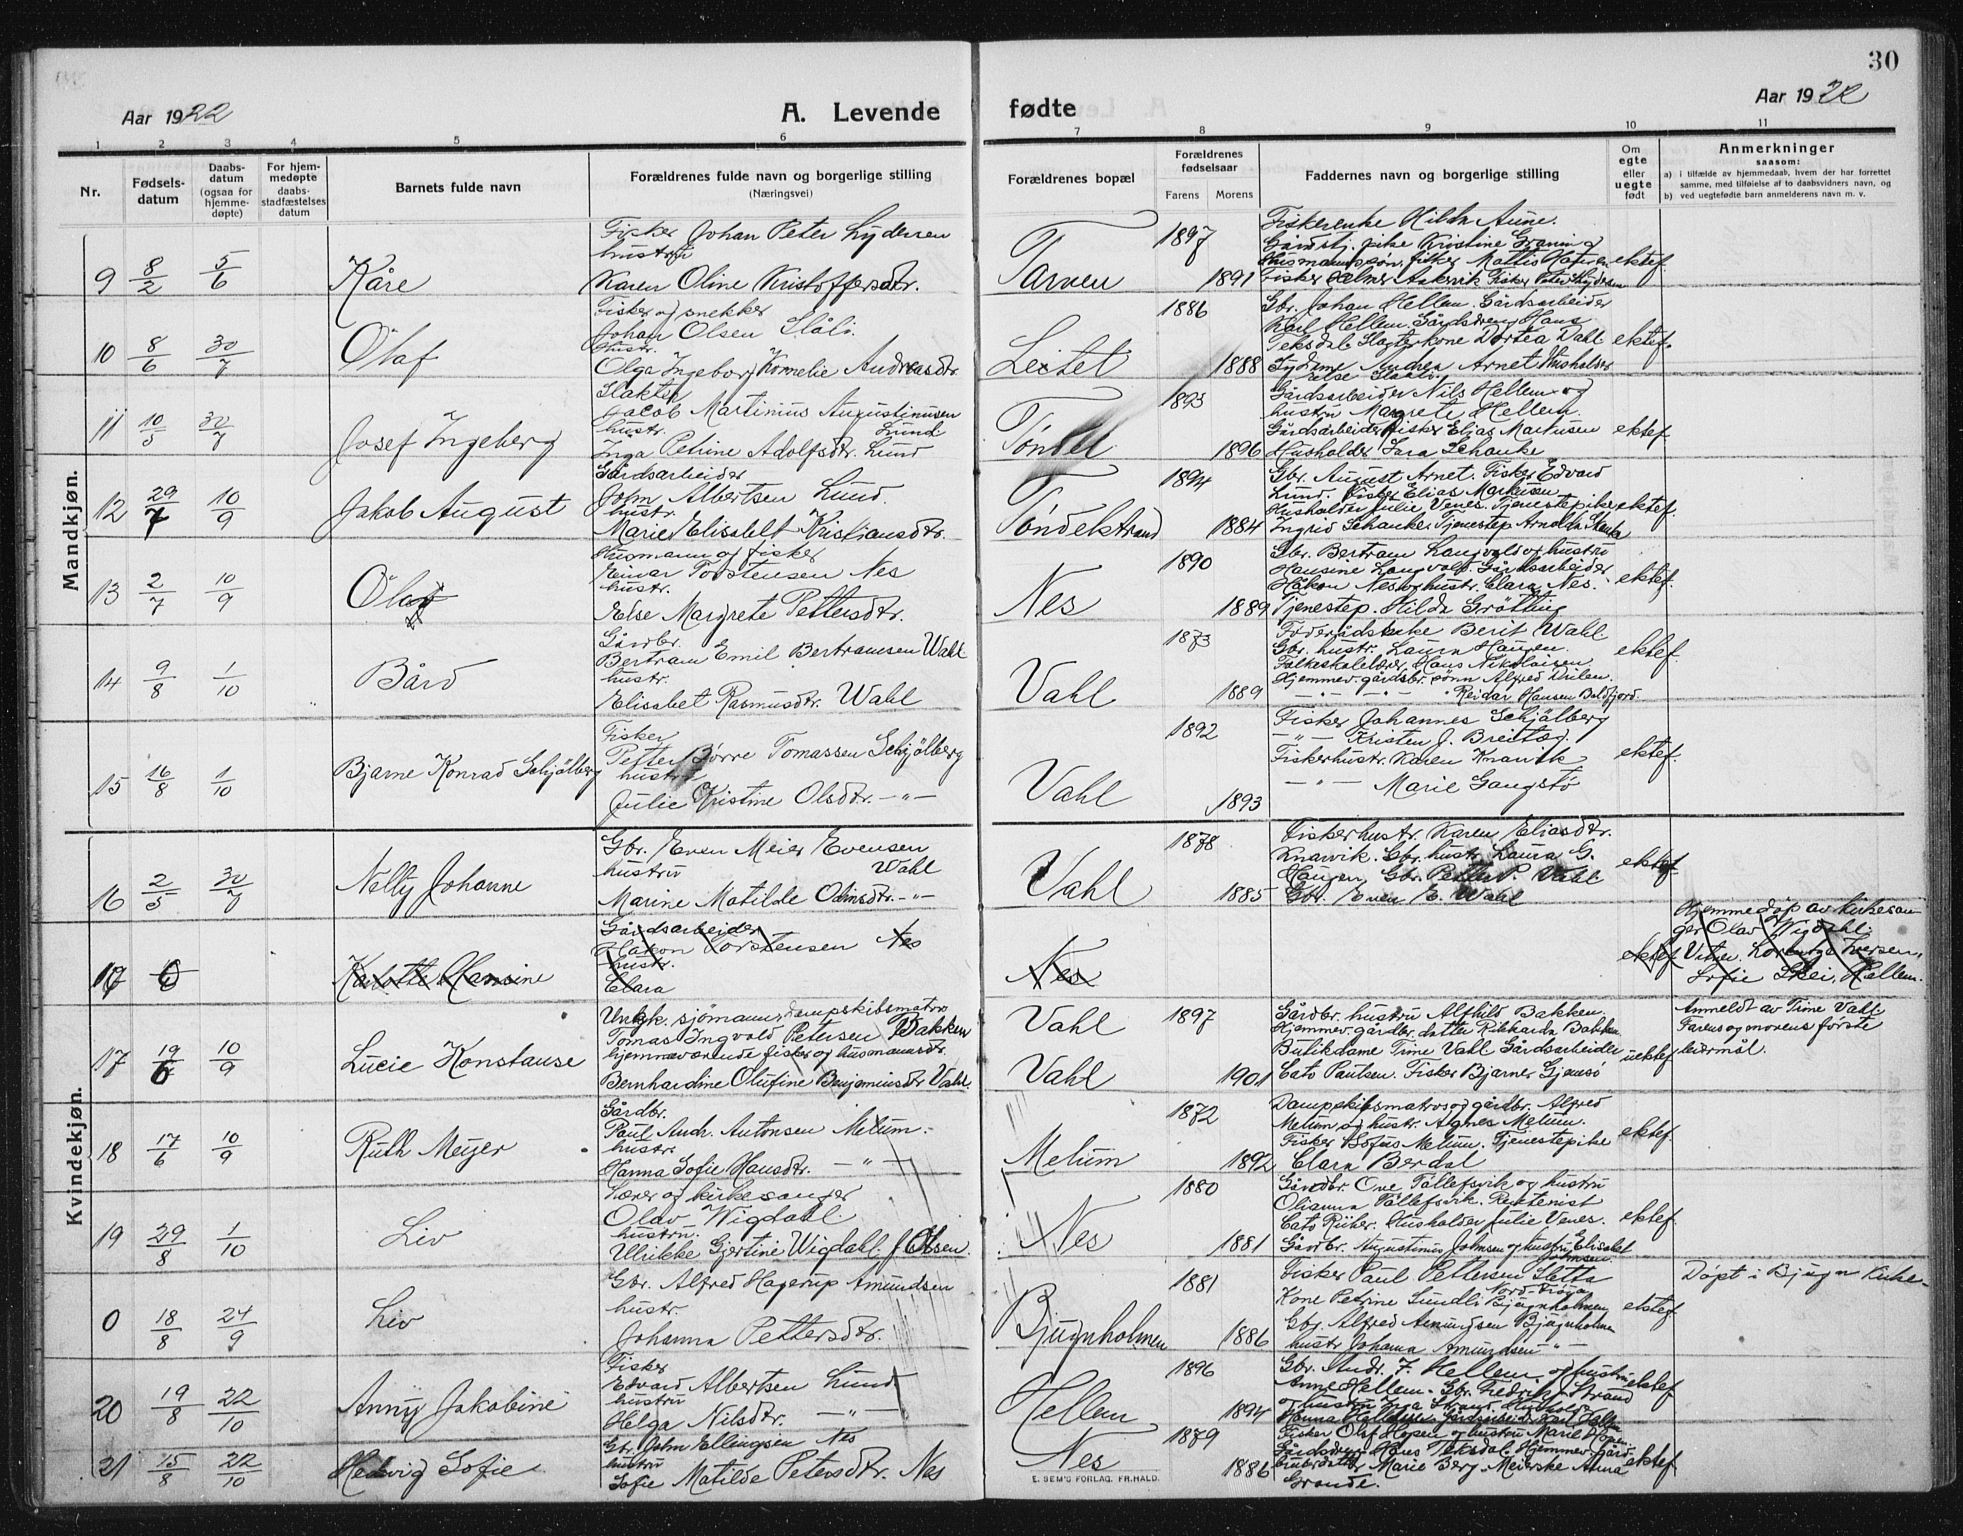 30
Aar 1922
A. Levende
fødte
Aar 1922
1 2 3 4 5 6 7 8 9 10 11
Nr.
Fødsels-
datum
Daabs-
datum
(ogsaa for
hjemme-
døpte)
For hjem-
medøpte
daabs-
stadfæstelses
datum
Barnets fulde navn
Forældrenes fulde navn og borgerlige stilling
(Næringsvei)
Forældrenes bopæl
Forældrenes
fødselsaar
Farens Morens
Faddernes navn og borgerlige stilling
Om
egte
eller
uegte
født
Anmerkninger
saasom:
a) i tilfælde av hjemmedaab, hvem der har forrettet
samme, med tilføielse af to daabsvidners navn, og
b) ved uegtefødte barn anmelderens navn m. v.
Mandkjøn.
9 8/2 5/6 Kåre
Fisker Johan Peter Lydersen
hustru
Karen Oline Kristoffersdtr.
Tarven
1897
1891
Fiskerenke Hilda Aune.
Gårdstj. pike Kristine Graning
Husmannssøn, fisker Mattis Hansen
ektef.
10 8/6 30/7 Olaf
Fisker og snekker
Johan Olsen Slålø
hustr.
Olga Ingeborg Kornelie Andreasdtr.
Leitet
1886
1888
Gbr. Johan Hellem. Gårdsarbeider
Karl Hellem. Gårdsdreng Hans
Teksdal. Slagterkone Dortea Dahl
ektef.
11 10/5 30/7 Josef Ingeberg
Slakter
Jacob Martinius Augustinusen
hustr. Lund.
Inga Petrine Adolfsdtr. Lund
Töndel
1893
1896
Gårdsarbeider Nils Hellem og
hustru Margrete Hellem.
Gårdsarbeider fisker Elias Markusen
Husholder Sara Schanke
ektef.
12 29/7 10/9 Jakob August
Gårdsarbeider
John Albertsen Lund.
hustr.
Marie Elisabet Kristiansdtr.
Töndelstrand
1894
1884
Gbr. August Arnet. Fisker Edvard
Lund. Fisker Elias Markusen
Husholder Julie Venes. Tjenestepike
Ingrid Schanke. Tjenestep. Arnolda
ektef.
13 2/7 10/9 Olav
Husmann og fisker
Einar Torstensen Nes
hustr.
Else Margrete Pettersdtr.
Nes
1890
1889
Gbr. Bertram Langvold og hustru
Hansine Langvold. Gårdsarbeider
Håkon Nes og hustr. Clara Nes.
Tjenestep. Hilda Grötting
ektef.
14 9/8 1/10 Bård
Gårdbr.
Bertram Emil Bertramsen Wahl
hustr.
Elisabet Rasmusdtr. Wahl
Vahl
1873
1889
Föderådsenke Berit Wahl
Gbr. hustr. Laura Haugen.
Folkeskolelærer Hans Nikolaisen
Hjemmev. gårdbr. sønn Alfred
Reidar Hansen
ektef.
15 16/8 1/10 Bjarne Konrad Schjölberg
Fisker
Petter Børre Tomassen Schjölberg
hustru
Julie Kristine Olsdtr. —"—
Vahl
1892
1893
Fisker Johannes Schjölberg
—"— Kristen J. Breitæg.
Fiskerhustr. Karen Knarvik
—"— Marie Gangstø
ektef.
Kvindekjøn.
16 2/5 30/7 Nelly Johanne
Gbr. Even Meier Evensen
hustru Wahl
Marine Matilde Odinsdtr. —"—
Vahl
1878
1885
Fiskerhustr. Karen Eliasdtr.
Knarvik. Gbr. hustr. Laura G.
Haugen. Gbr. Petter P. Vahl
Gbr. Even E. Wahl
ektef.
17 Karlotte Hansine
Gårdsarbeider
Håkon Torstensen Nes
hustr.
Clara
Nes
ektef.
Hjemmedøp av kirkesan-
ger Olav Wigdahl.
Vitner. Iversen,
Sofie Skei, Hellem.
17 19/6 10/9 Lucie Konstanse
Ungk. sjömann, dampskibsmatros
Tomas Ingvald Petersen Bakken
hjemmeværende fisker og husmannsdtr.
Bernhardine Olufine Benjaminsdtr. Vahl.
Vahl
Vahl
1897
1901
Gårdbr. hustru Alfhild Bakken
Hjemmev. gårdbr. datter Rikharda Bakken
Butikdame Trine Vahl. Gårdsarbeider
Cato Paulsen. Fisker Bjarne Gjemsö
uektef
Anmeldt av Trine Vahl
Farens og morens første
leiermål.
18 17/6 10/9 Ruth Meyer
Gårdbr.
Paul Andr. Antonsen Melum.
hustr.
Hanna Sofie Hansdtr. —"—
Melum
1872
1892
Dampskibsmatros og gårdbr. Alfred
Melum og hustr. Agnes Melum.
Fisker Sofus Melum. Tjenestepike
Clara Berdal
ektef.
19 29/8 1/10 Liv
Lærer og kirkesanger
Olav Wigdahl.
hustru.
Ulrikke Gjertine Wigdahl f. Olsen.
Nes
1880
1881
Gårdbr. Ove Tållefsvik og hustru
Olianna Tållefsvik. Rentenist
Cato Riiher. Husholder Julie Venes.
Gårdbr. Augustinus Johnsen og hustru Elisabet
Johnsen
ektef.
0 18/8 24/9 Liv
Gbr. Alfred Hagerup Amundsen
hustr.
Johanna Pettersdtr.
Bjugnholmen
1881
1886
Fisker Paul Pettersen Sletta
Nord-Frøya
Kone Petrine Sundli Bjugnholmen
Gbr. Alfred Amundsen Bjugnholmen
hustr Johanna Amundsen —"—
ektef.
Döpt i Bjugn Kirke
20 19/8 22/10 Anny Jakobine
Fisker
Edvard Albertsen Lund
hustru
Helga Nilsdtr. —"—
Hellem
1896
1894
Gbr. Andr. J. Hellem og hustru
Anne Hellem. Gbr. Fredrik Strand
og hustru Inga Strand.
ektef.
21 15/8 22/10 Hedvig Sofie
Gbr. John Ellingsen Nes
hustru
Sofie Matilde Petersdtr. Nes
Nes
1879
1886
Fisker Olaf Hopen og hustru Marie Hopen
Gårdsdreng Hans Teksdal. Hjemmev. gård-
brukerdatter Marie Berg. Meierske Anna
Grande.
ektef
E. SEM'S FORLAG. FR.HALD.